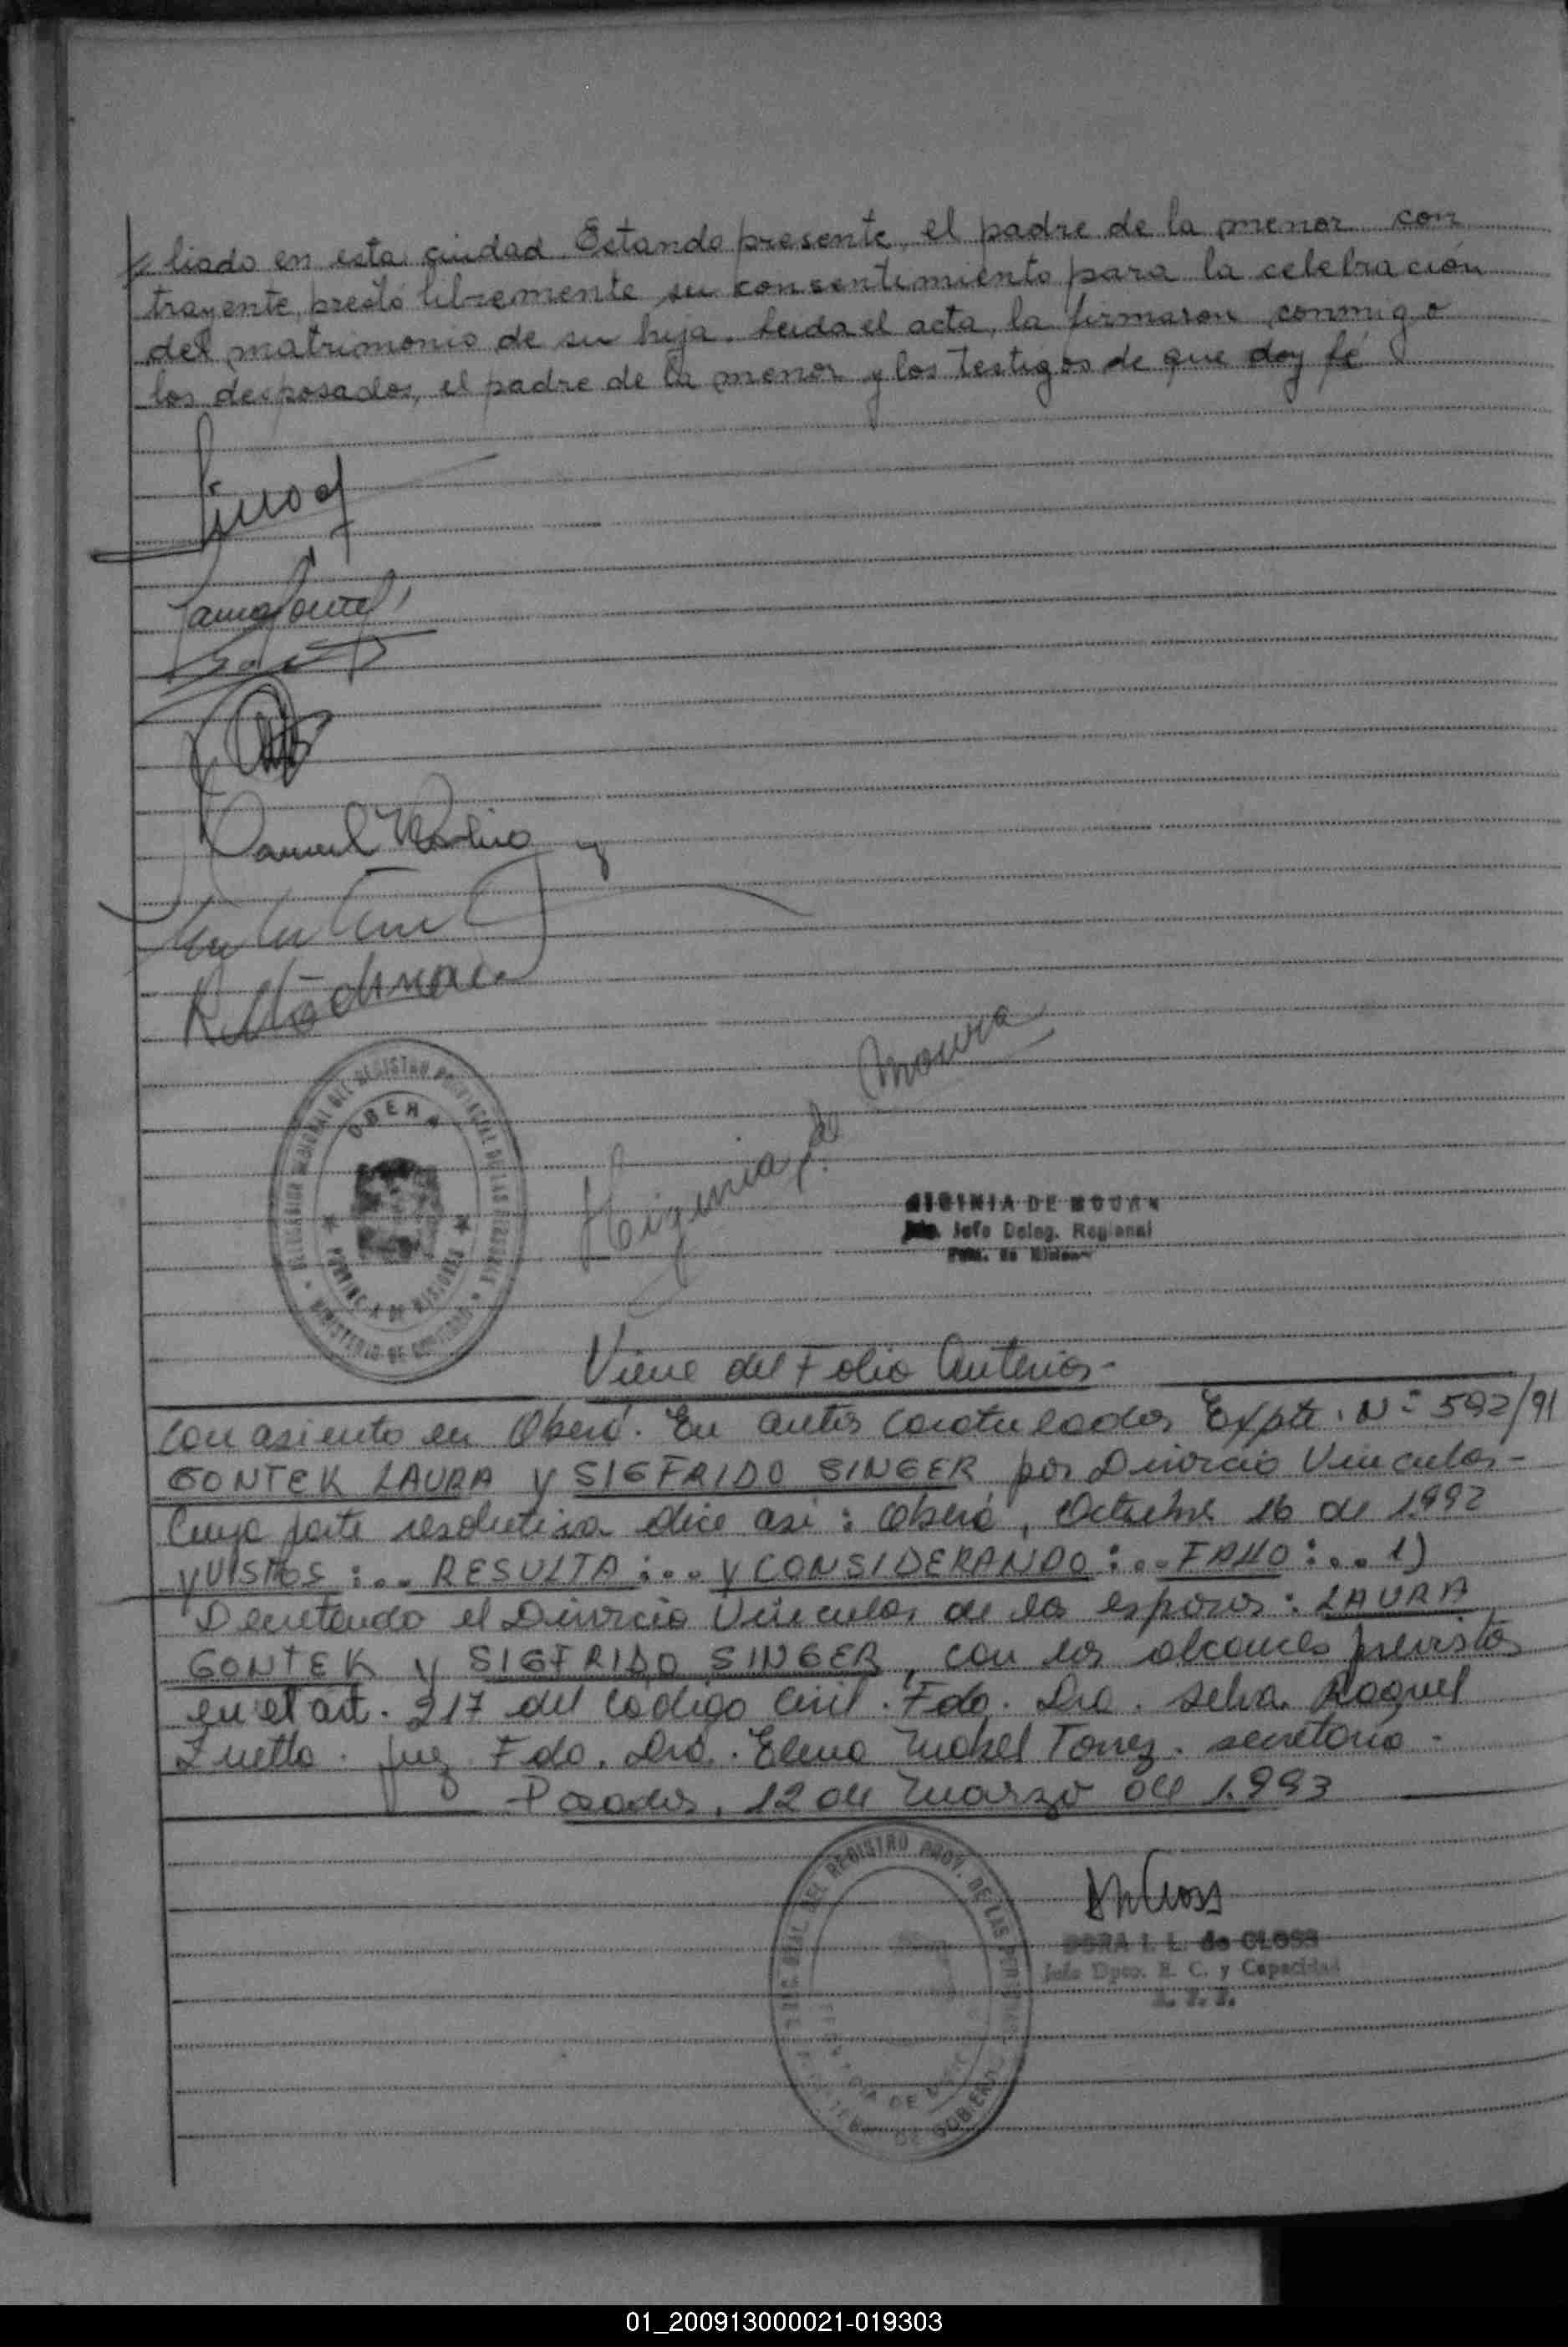 liado en esta ciudad. Estando presente, el padre de la menor con
trayente, prestó libremente su consentimiento para la celebración
del matrimonio de su hija. Leida el acta, la firmaron conmigo
los desposados, el padre de la menor y los testigos de que doy fé
OBERA
PROVINCIA DE MISIONES
MINISTERIO DE GOBIERNO
Higinia de Moura
HIGINIA DE MOURA
Jefe Deleg. Regional
Viene del Folio Anterior-
con asiento en Oberá. En autos caratulados Expte. Nº 592/91
GONTEK LAURA y SIGFRIDO SINGER por Divorcio Vincular-
Cuya parte resolutiva dice asi: Oberá, Octubre 16 de 1.992
y VISTOS:.. RESULTA:... y CONSIDERANDO:.. FALLO:... 1)
Decretando el Divorcio Vincular de los esposos: LAURA
GONTEK y SIGFRIDO SINGER, con los alcances previstos
en el art. 217 del Código Civil. Fdo. Dra. Selva Raquel
Juez Fdo. Dra. Elena Torrez. secretaria-
Posadas, 12 de Marzo de 1.993
DEL REGISTRO PROV. DE LAS PERSONAS
DE GOBIERNO
DORA I. L. de CLOSS
Jefe Dpto. E. C. y Capacidad
01_200913000021-019303